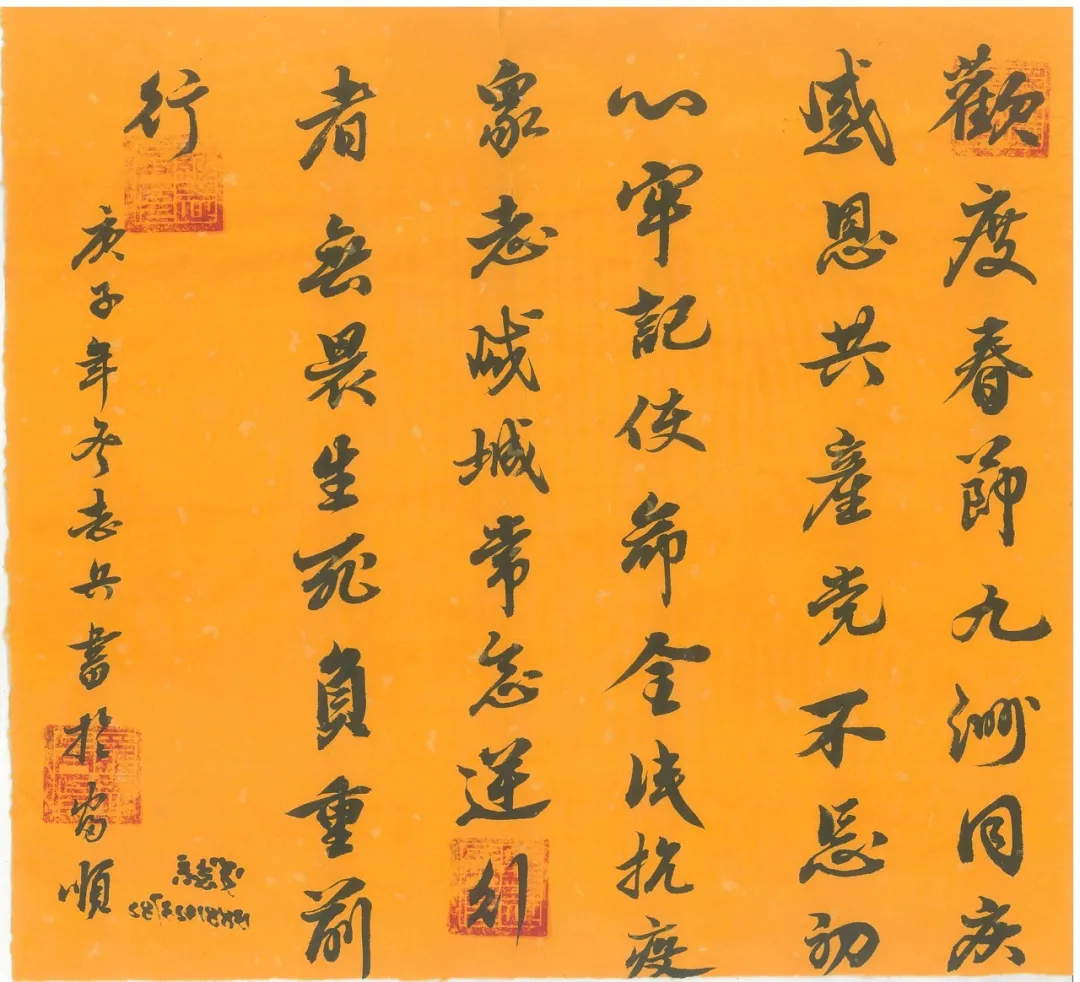 歡度春節九洲同庆
感恩共產党不忘初
心牢記使命全民抗疫
眾志成城常逆行
者無畏生死負重前
行
庚子年冬老兵書於富順